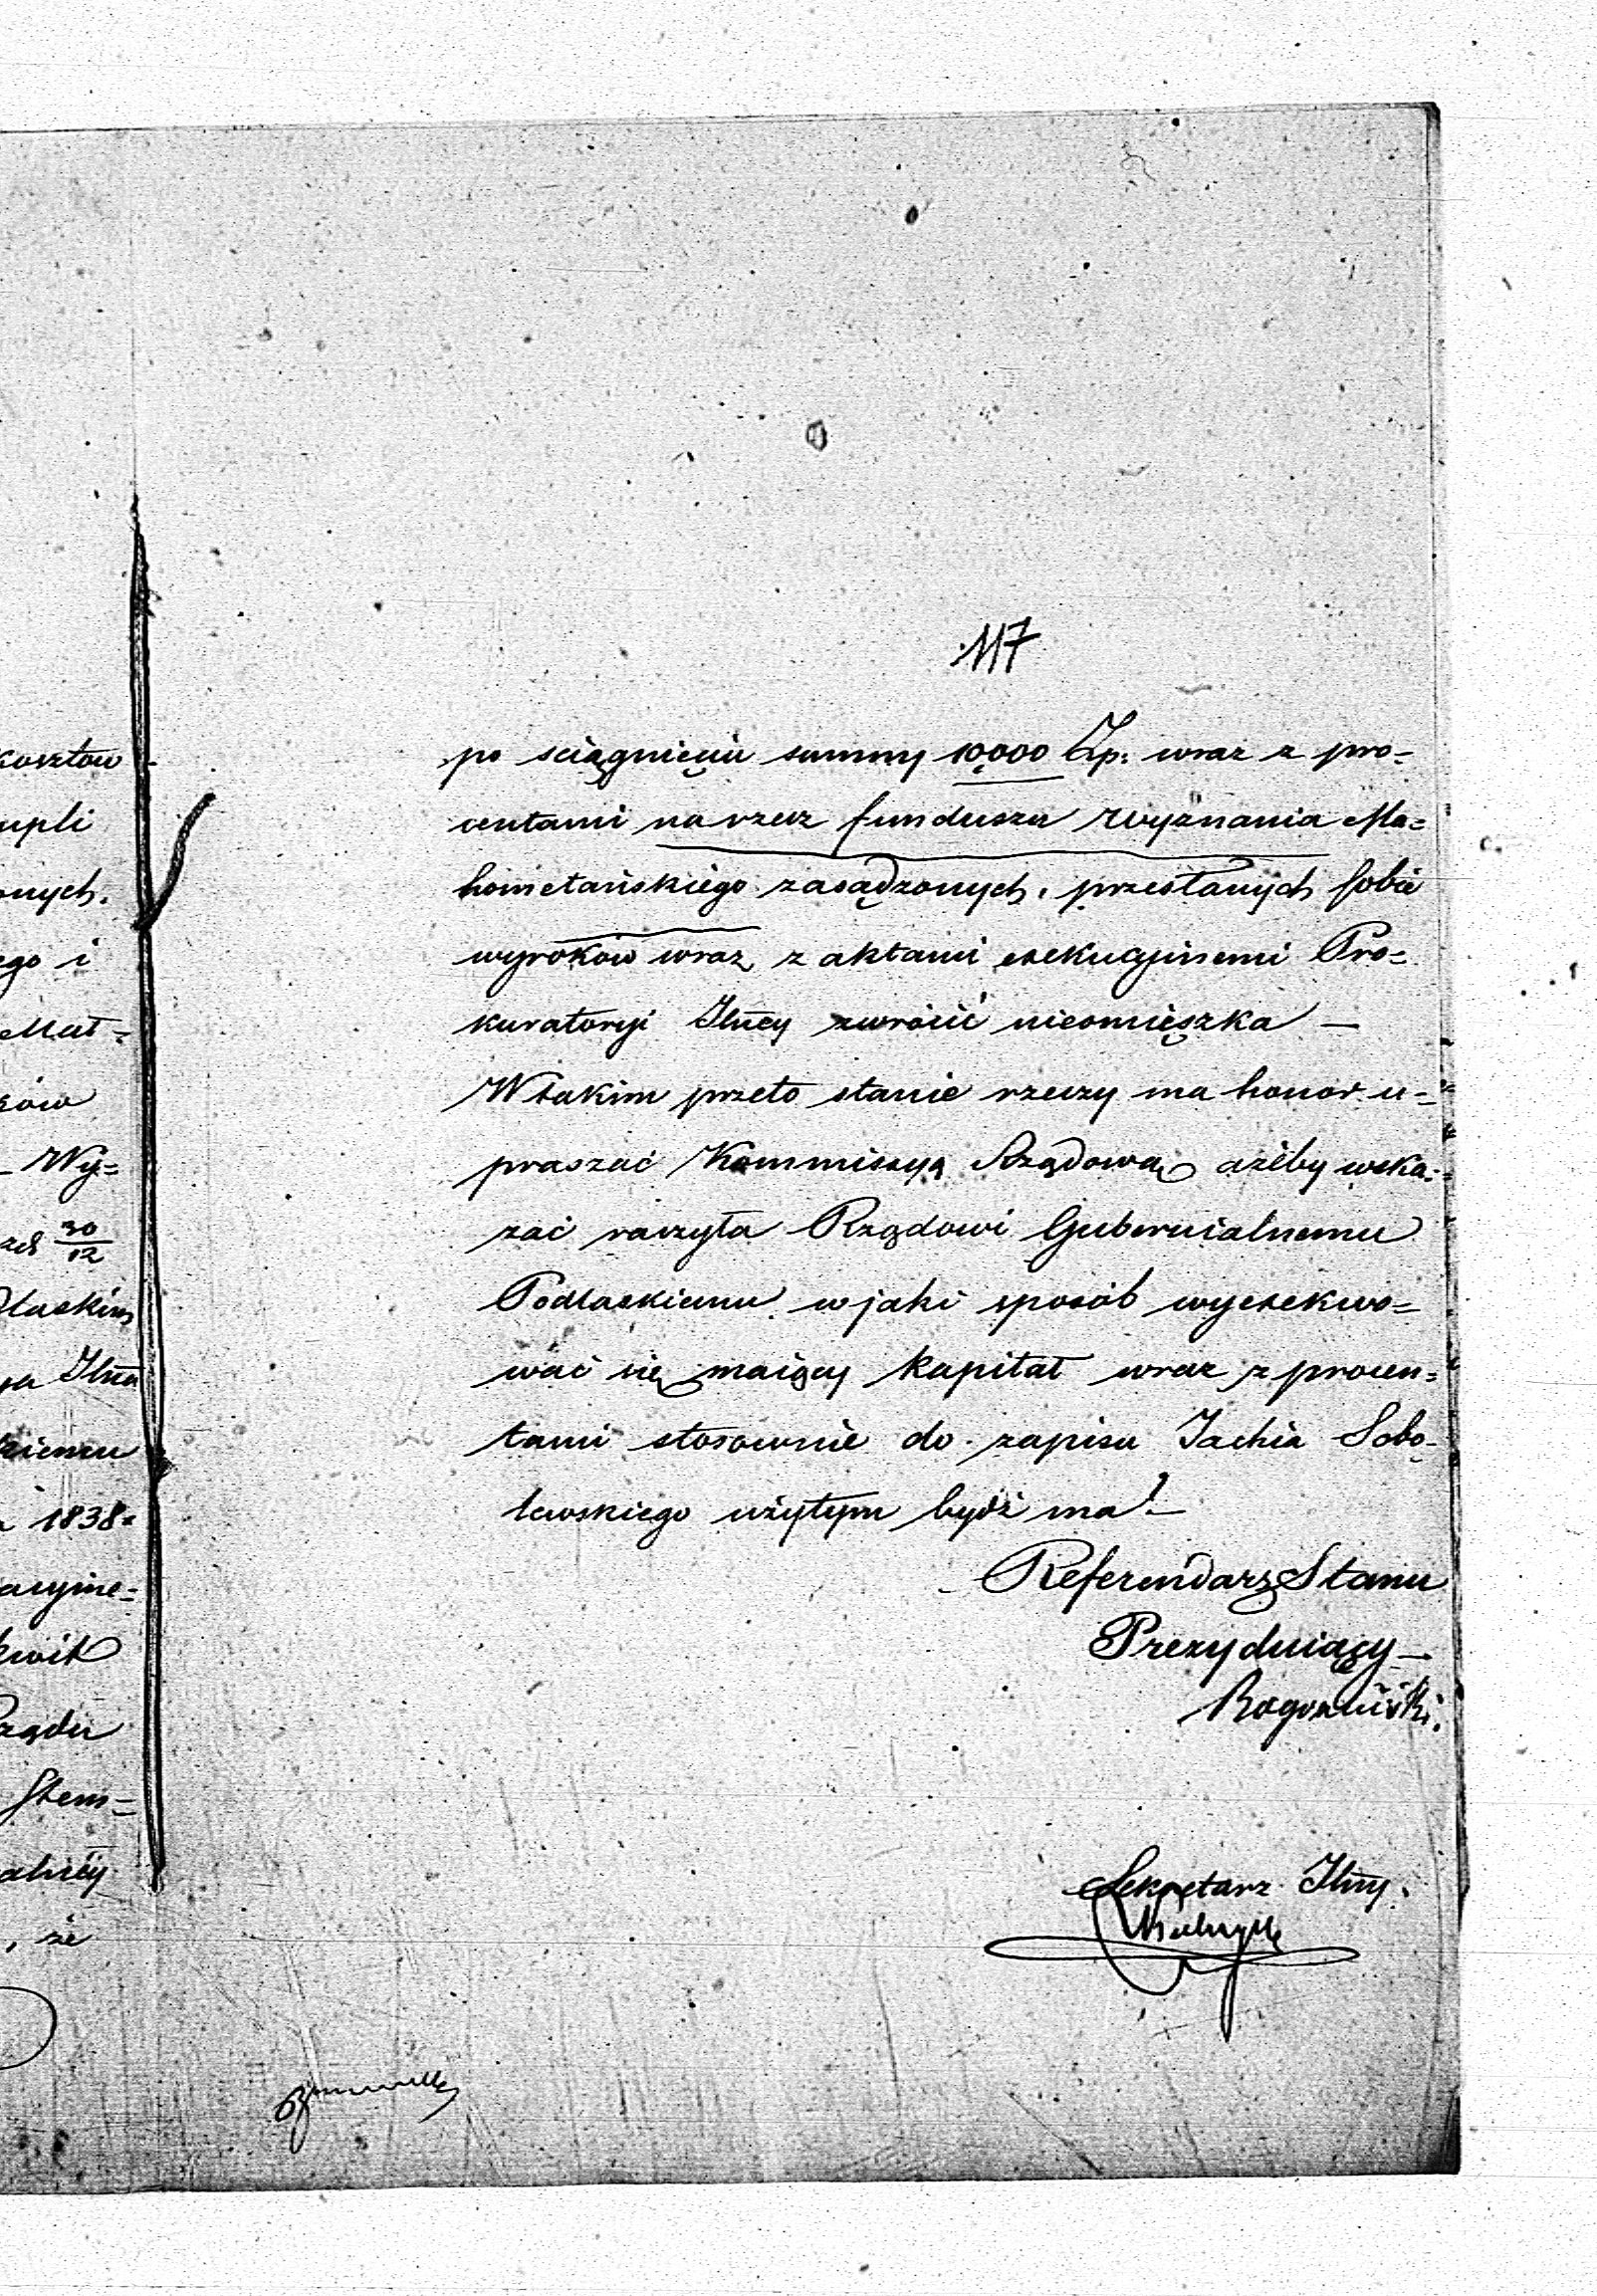 kosztów
upli
onych.
ego i
Mał-
ków
Wy-
30/12
dlaskim
Jlna
kiemu
1838.
acyjne-
kwit
Rządu
Stem-
alnéy
, że
117
po sciągnięciu summy 10,000 Zp: wraz z pro-
centami na rzecz funduszu Wyznania Ma-
hometańskiego zasądzonych, przesłanych sobie
wyroków wraz z aktami exekucyjnemi Pro-
kuratoryi Jlney zwrócić nieomięszka —
W takim przeto stanie rzeczy ma honor u-
praszać Kommissyą Rządową ażeby wska-
zać raczyła Rządowi Gubernialnemu
Podlaskiemu w jaki sposób wyexekwo-
wać się maiący kapitał wraz z procen-
tami stosownie do zapisu Jachia Sobo-
lewskiego użytym bydź ma! —
Referendarz Stanu
Prezyduiący —
Sekretarz Jlny.